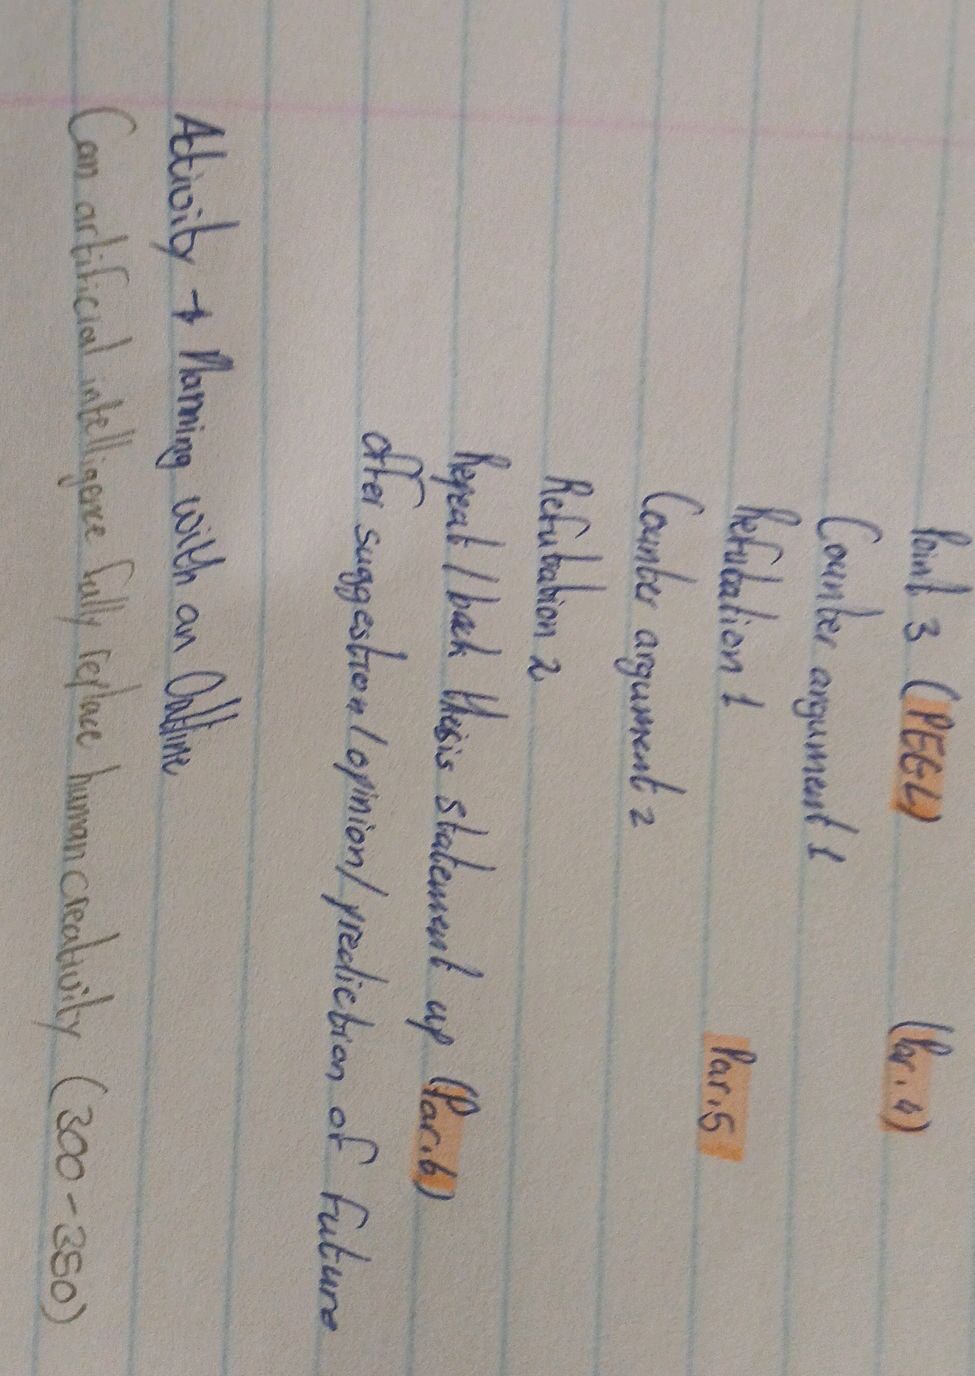 Point 3 (PEEL) (Par.4)
Counter argument 1
Refutation 1 Par.5
Counter argument 2
Refutation 2
Repeat / back thesis statement up (Par.6)
offer suggestion/opinion/prediction of future
Activity → Planning with an Outline
Can artificial intelligence fully replace human creativity (300-350)